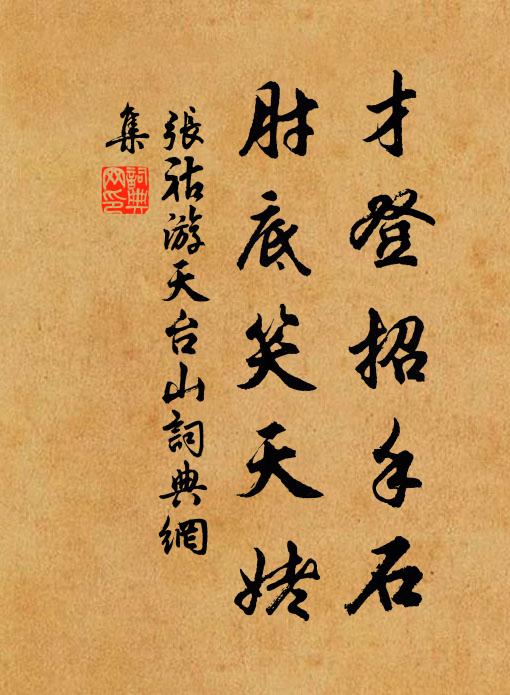 才登招手石
肘底笑天姥
張祜游天台山詞典網
集
詞典網印